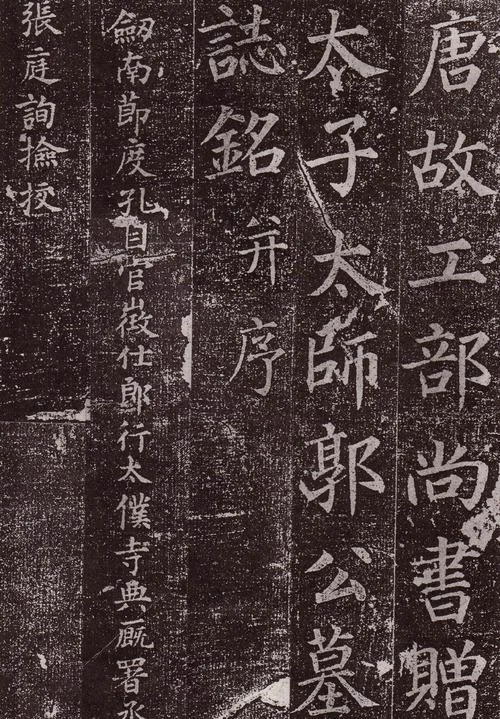 唐故工部尚書贈
太子太師郭公墓
誌銘并序
劒南節度孔目官徵仕郎行太僕寺典廄署丞
張庭詢撿挍